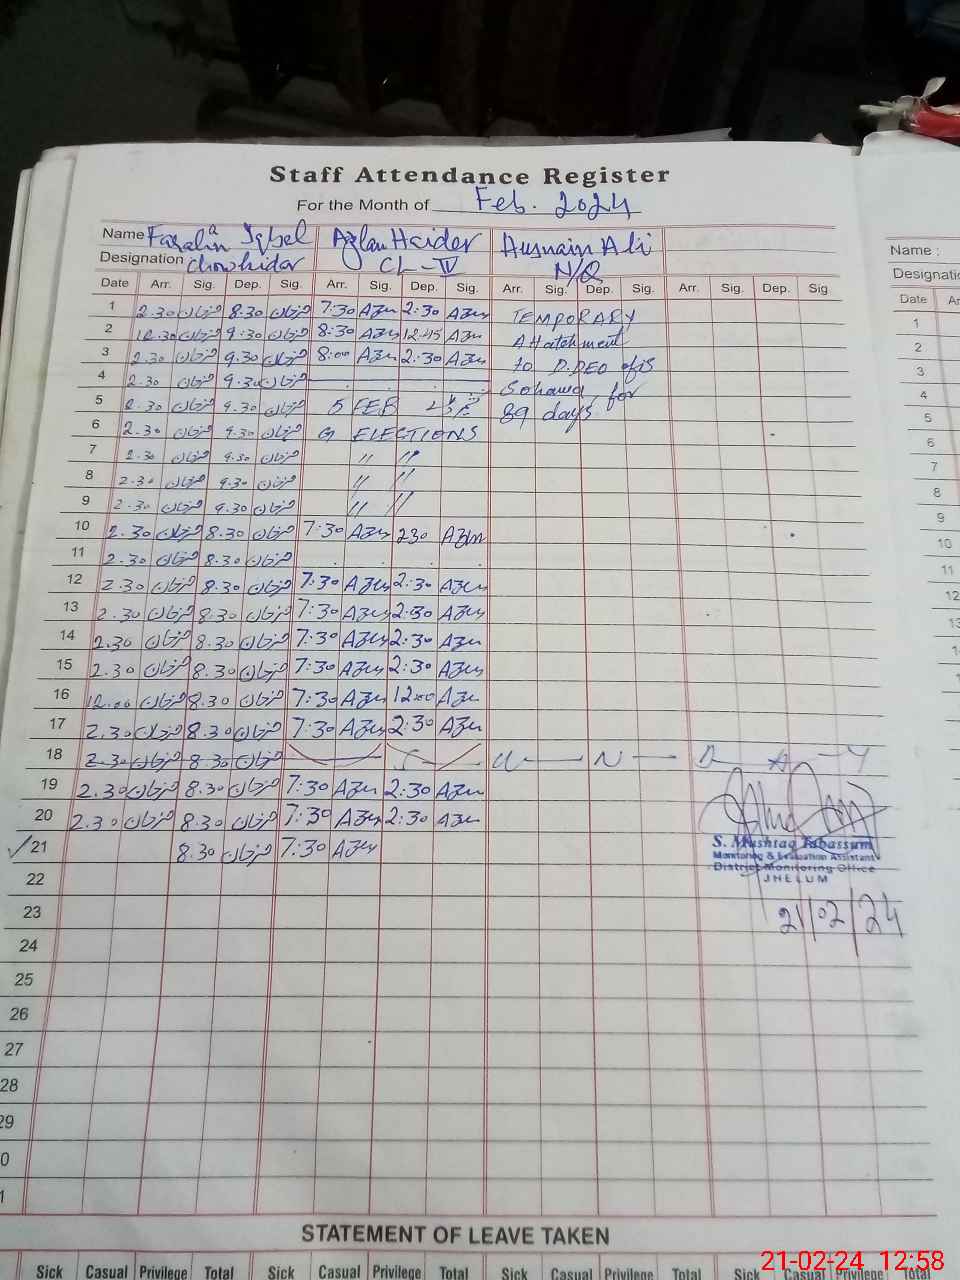 Staff Attendance Register
For the Month of Feb. 2024
Name Iqbal Azlan Haider Husnain Ali
Designation Chowkidar CL-IV N/Q
Name :
Date Arr. Sig. Dep. Sig. Arr. Sig. Dep. Sig. Arr. Sig. Dep. Sig. Arr. Sig. Dep. Sig.
Date
1 2.30 فرزان 8.30 فرزان 7:30 Azlan 2:30 Azlan TEMPORARY 1
2 12.30 فرزان 9.30 فرزان 8:30 Azlan 12:45 Azlan Attatchment 2
3 2.30 فرزان 9.30 فرزان 8:00 Azlan 2:30 Azlan to D.DEO 3
4 2.30 فرزان 9.30 فرزان Sohawa for 4
5 2.30 فرزان 9.30 فرزان 5 FEB 89 days. 5
6 2.30 فرزان 9.30 فرزان G ELECTIONS 6
7 2.30 فرزان 9.30 فرزان // // 7
8 2.30 فرزان 9.30 فرزان // // 8
9 2.30 فرزان 9.30 فرزان // // 9
10 2.30 فرزان 8.30 فرزان 7:30 Azlan 230 Azlan 10
11 2.30 فرزان 8.30 فرزان 11
12 2.30 فرزان 8.30 فرزان 7:30 Azlan 2:30 Azlan 12
13 2.30 فرزان 8.30 فرزان 7:30 Azlan 2:30 Azlan 13
14 2.30 فرزان 8.30 فرزان 7:30 Azlan 2:30 Azlan
15 2.30 فرزان 8.30 فرزان 7:30 Azlan 2:30 Azlan
16 12.00 فرزان 8.30 فرزان 7:30 Azlan 12:00 Azlan
17 2.30 فرزان 8.30 فرزان 7:30 Azlan 2:30 Azlan
18 2.30 فرزان 8.30 فرزان S U N D A Y
19 2.30 فرزان 8.30 فرزان 7:30 Azlan 2:30 Azlan
20 2.30 فرزان 8.30 فرزان 7:30 Azlan 2:30 Azlan
21 8.30 فرزان 7:30 Azlan
S. Mushtaq Tabassum
Monitoring & Evaluation Assistant
District Monitoring Office
JHELUM
21/02/24
22
23
24
25
26
27
28
29
0
1
STATEMENT OF LEAVE TAKEN
Sick Casual Privilege Total Sick Casual Privilege Total Sick Casual Privilege Total Sick Casual Privilege Total
21-02-24 12:58